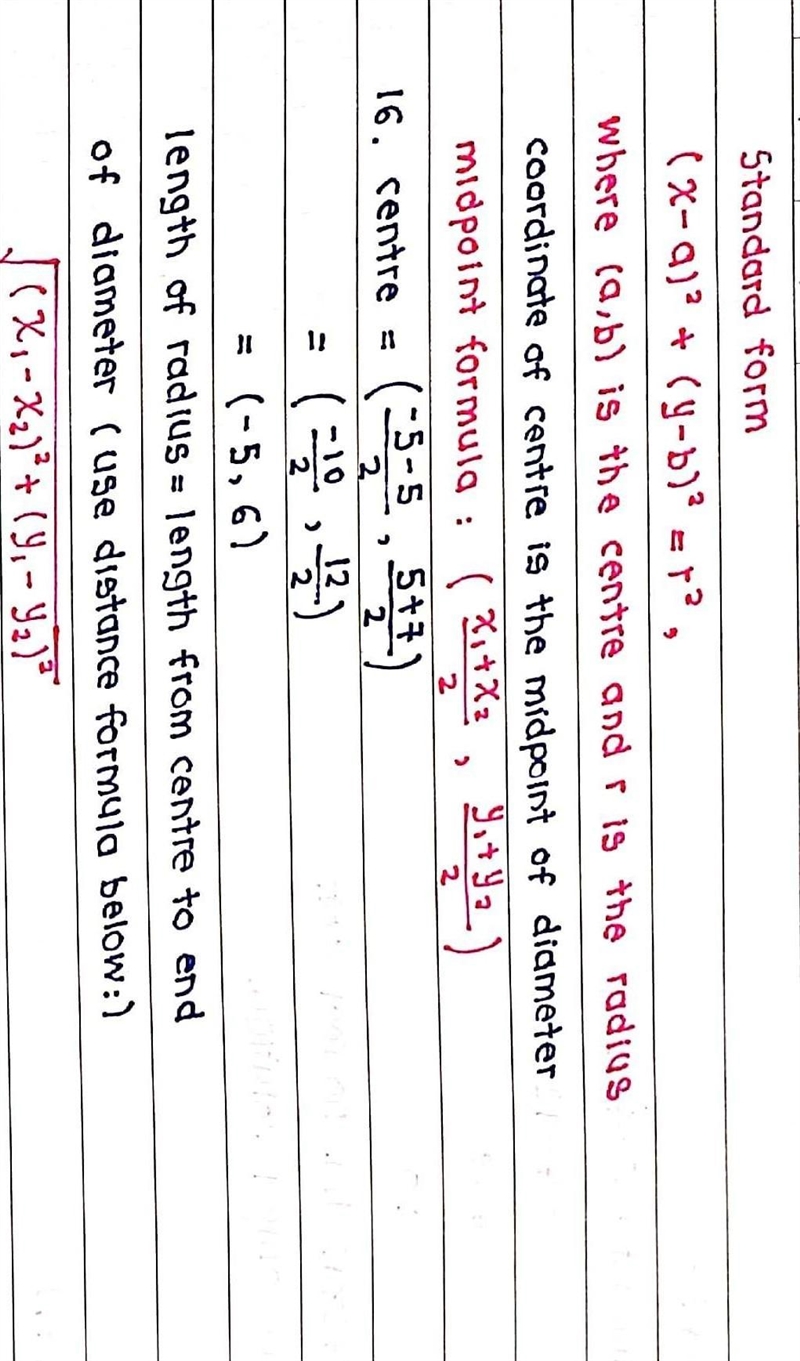 Standard form
(x-a)² + (y-b)² = r²,
where (a,b) is the centre and r is the radius
coordinate of centre is the midpoint of diameter
midpoint formula : ( x₁+x₂/2 , y₁+y₂/2 )
16. centre = ( -5-5/2 , 5+7/2 )
= ( -10/2 , 12/2 )
= (-5, 6)
length of radius = length from centre to end
of diameter (use distance formula below:)
√(x₁-x₂)² + (y₁-y₂)²